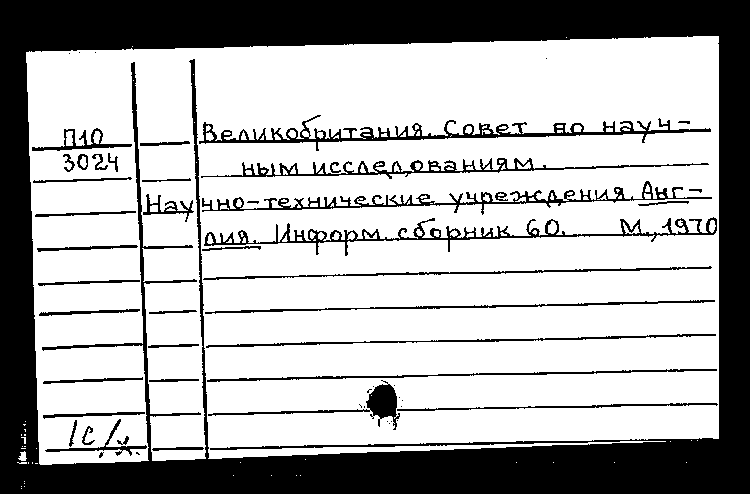 П10
3024
Великобритания. Совет по науч-
ным исследованиям.
Научно-технические учреждения. Анг-
лия. Информ. сборник 60. М., 1970
1с/х.